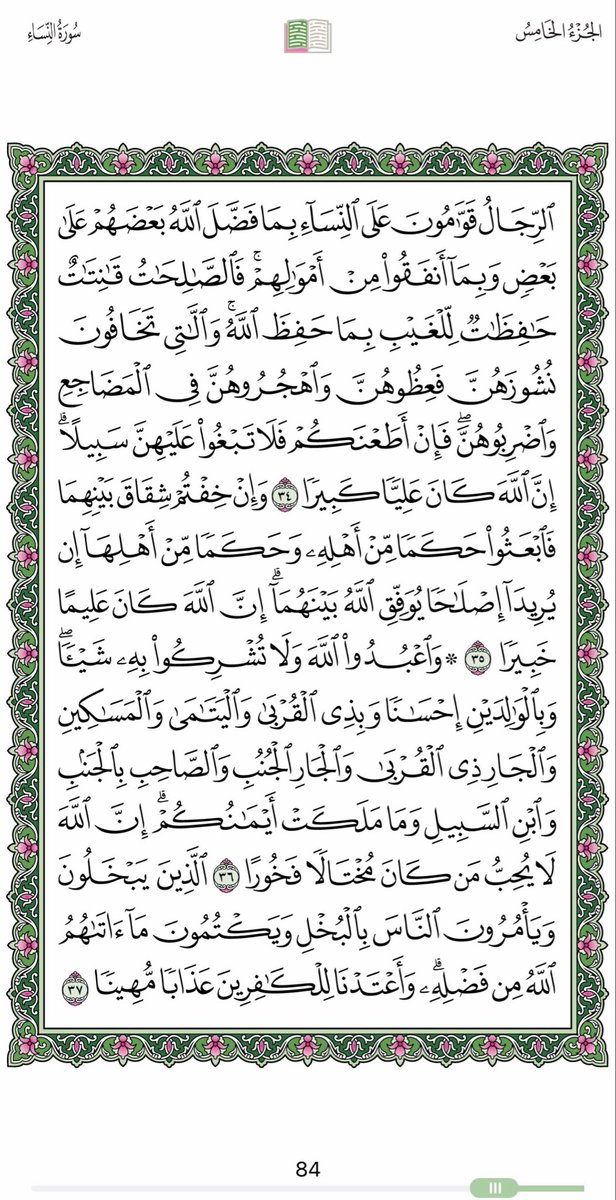 الجُزْءُ الخَامِسُ
سُورَةُ النِّسَاءِ
ٱلرِّجَالُ قَوَّٰمُونَ عَلَى ٱلنِّسَآءِ بِمَا فَضَّلَ ٱللَّهُ بَعْضَهُمْ عَلَىٰ
بَعْضٖ وَبِمَآ أَنفَقُواْ مِنْ أَمْوَٰلِهِمْۚ فَٱلصَّٰلِحَٰتُ قَٰنِتَٰتٌ
حَٰفِظَٰتٞ لِّلْغَيْبِ بِمَا حَفِظَ ٱللَّهُۚ وَٱلَّٰتِي تَخَافُونَ
نُشُوزَهُنَّ فَعِظُوهُنَّ وَٱهْجُرُوهُنَّ فِي ٱلْمَضَاجِعِ
وَٱضْرِبُوهُنَّۖ فَإِنْ أَطَعْنَكُمْ فَلَا تَبْغُواْ عَلَيْهِنَّ سَبِيلًاۗ
إِنَّ ٱللَّهَ كَانَ عَلِيّٗا كَبِيرٗا ٣٤ وَإِنْ خِفْتُمْ شِقَاقَ بَيْنِهِمَا
فَٱبْعَثُواْ حَكَمٗا مِّنْ أَهْلِهِۦ وَحَكَمٗا مِّنْ أَهْلِهَآ إِن
يُرِيدَآ إِصْلَٰحٗا يُوَفِّقِ ٱللَّهُ بَيْنَهُمَآۗ إِنَّ ٱللَّهَ كَانَ عَلِيمًا
خَبِيرٗا ٣٥ ۞ وَٱعْبُدُواْ ٱللَّهَ وَلَا تُشْرِكُواْ بِهِۦ شَيْـٔٗاۖ
وَبِٱلْوَٰلِدَيْنِ إِحْسَٰنٗا وَبِذِي ٱلْقُرْبَىٰ وَٱلْيَتَٰمَىٰ وَٱلْمَسَٰكِينِ
وَٱلْجَارِ ذِي ٱلْقُرْبَىٰ وَٱلْجَارِ ٱلْجُنُبِ وَٱلصَّاحِبِ بِٱلْجَنۢبِ
وَٱبْنِ ٱلسَّبِيلِ وَمَا مَلَكَتْ أَيْمَٰنُكُمْۗ إِنَّ ٱللَّهَ
لَا يُحِبُّ مَن كَانَ مُخْتَالٗا فَخُورًا ٣٦ ٱلَّذِينَ يَبْخَلُونَ
وَيَأْمُرُونَ ٱلنَّاسَ بِٱلْبُخْلِ وَيَكْتُمُونَ مَآ ءَاتَىٰهُمُ
ٱللَّهُ مِن فَضْلِهِۦۗ وَأَعْتَدْنَا لِلْكَٰفِرِينَ عَذَابٗا مُّهِينٗا ٣٧
84